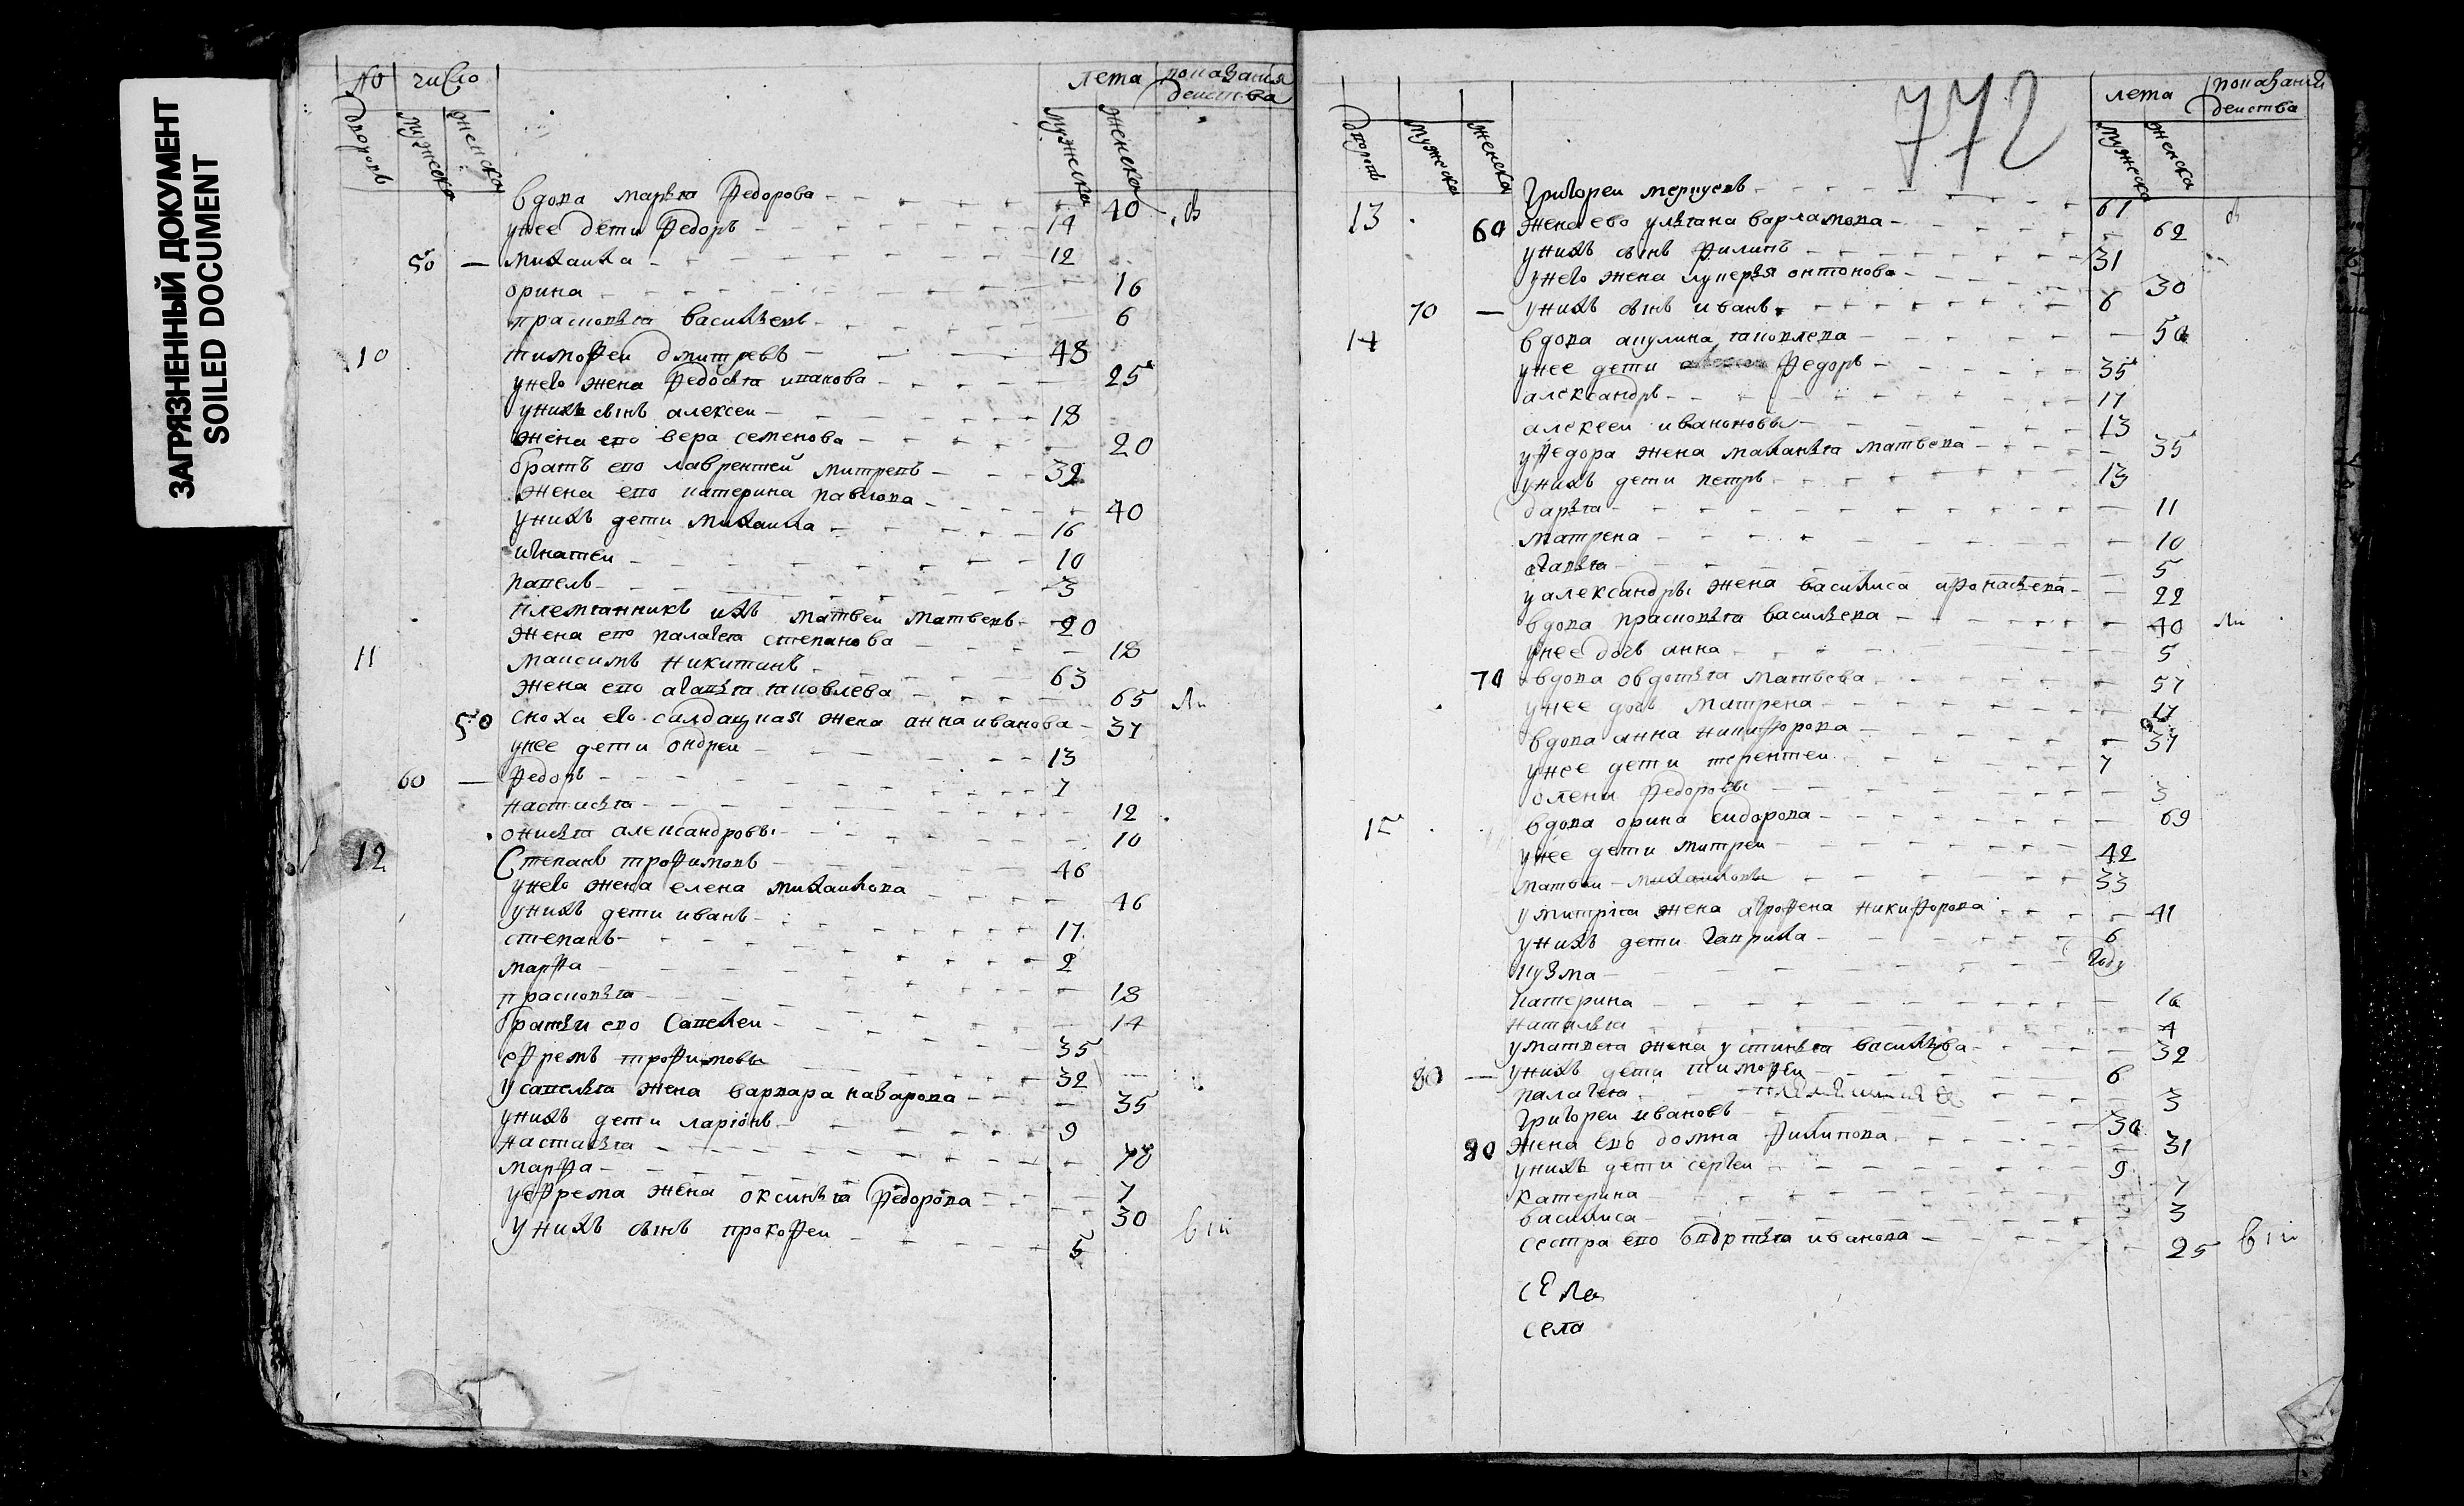 ЗАГРЯЗНЕННЫЙ ДОКУМЕНТ
SOILED DOCUMENT
№ число лета показания
действа
дворовъ мужеска женска мужеска женска
вдова марья Федорова 40
унее дети Федоръ 14
50 михаила 12
орина 16
прасковья васильевы 6
10 тимофеи дмитревъ 48
унего жена Федосья иванова 25
унихъ сынъ алексеи 18
жена ево вера семенова 20
братъ ево лаврентеи митревъ 32
жена ево катерина павлова 40
унихъ дети михаила 16
игнатеи 10
павелъ 3
племянникъ ихъ матвеи матвевъ 20
жена ево палагея степанова 18
11 максимъ никитинъ 63
жена ево агапья яковлева 65
50 сноха его салдацкая жена анна иванова 37
унее дети ондреи 13
60 Федоръ 7
настасья 12
онисья александровы 10
12 Степанъ трофимовъ 46
унего жена елена михаилова 46
унихъ дети иванъ 17
степанъ 2
марфа 18
прасковья 14
братьи ево Савелеи 35
ефремъ трофимовы 32
усавелья жена варвара назарова 35
унихъ дети ларіонъ 9
настасья
марфа 7
уефрема жена оксинья Федорова 30
унихъ сынъ прокофеи 5
772
лета показания
действа
дворовъ мужеска женска мужеска женска
13 Григореи меркуевъ 61
60 жена ево ульяна варламова 62
унихъ сынъ филипъ 31
унего жена лукерья онтонова 30
70 унихъ сынъ иванъ 6
14 вдова акулина яковлева 50
унее дети Федоръ 35
александръ 17
алексеи ивановы 13
уФедора жена маланья матвева 35
унихъ дети петръ 13
дарья 11
матрена 10
агапья 5
уалександры жена василиса афонасьева 22
вдова прасковья васильева 40
унее дочь анна 5
70 вдова овдотья матвева 57
унее дочь матрена 17
вдова анна никифорова 37
унее дети терентеи 7
олена Федоровы 3
15 вдова орина сидорова 69
унее дети митреи 42
матвеи михаиловы 33
умитрея жена аграфена никифорова 41
унихъ дети гаврила 6
кузма году
катерина 16
наталья 4
уматвея жена устинья васильева 32
80 унихъ дети тимофеи 6
палагея 3
Григореи ивановъ 30
80 жена евъ домна филипова 31
унихъ дети сергеи 9
катерина 7
василиса 3
сестра ево овдотья иванова 25
села
села